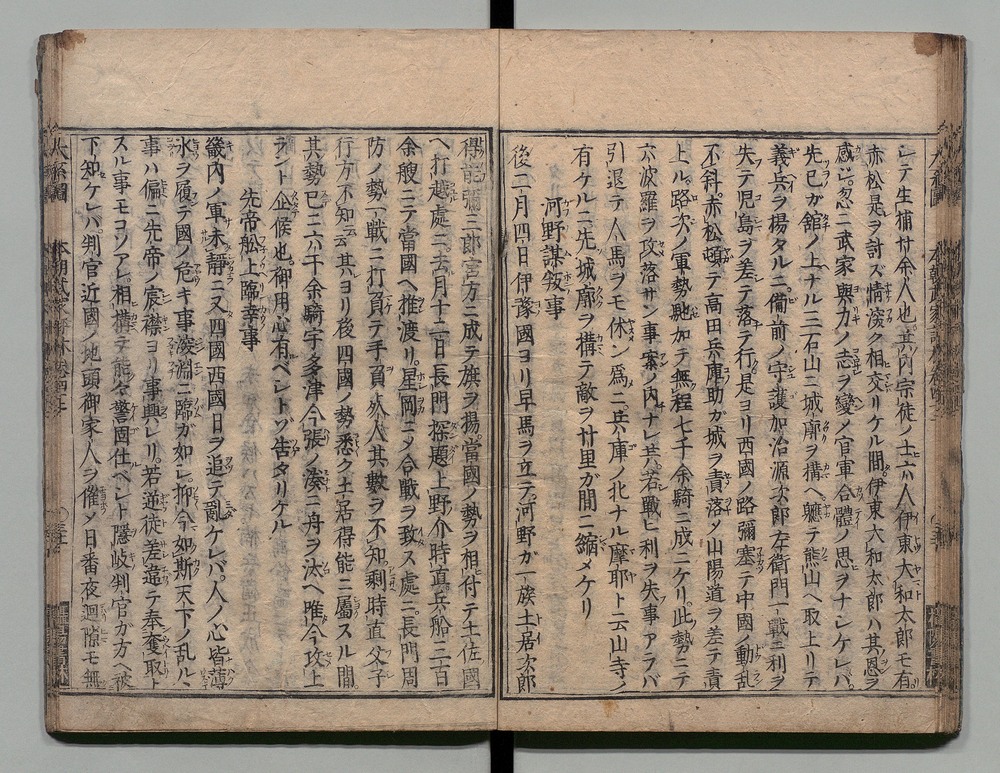 シテ生捕廿余人也其内宗徒ノ士六人伊東大和太郎モ有
赤松是ヲ討ズ情深ク相交リケル間伊東大和太郎ハ其恩ヲ
感ジ忽ニ武家與力ノ志ヲ變メ官軍合體ノ思ヲナシケレバ
先己ガ舘ノ上ナル三石山ニ城廓ヲ構ヘ軈テ熊山ヘ取上リテ
義兵ヲ揚タルニ備前ノ守護加治源次郎左衛門一戰ニ利ヲ
失テ児島ヲ差テ落テ行是ヨリ西國ノ路彌塞テ中國ノ動乱
不斜赤松頓テ高田兵庫助ガ城ヲ責落メ山陽道ヲ差テ責
上ル路次ノ軍勢馳加テ無程七千余騎ニ成ニケリ此勢ニテ
六波羅ヲ攻落サン事案ノ内ナレ共若戰ヒ利ヲ失事アラバ
引退テ人馬ヲモ休ン為ニ兵庫ノ北ナル摩耶ト云山寺ノ
有ケルニ先城廓ヲ構テ敵ヲ廿里ガ間ニ縮メケリ
河野謀叛事
後二月四日伊豫國ヨリ早馬ヲ立テ河野ガ一族土居次郎
得能彌三郎宮方ニ成テ旗ヲ揚當國ノ勢ヲ相付テ土佐國
ヘ打越處ニ去月十二日長門探題上野介時直兵船三百
余艘ニテ當國ヘ推渡リ星岡ニメ合戰ヲ致ス處ニ長門周
防ノ勢一戰ニ打負テ手負死人其數ヲ不知剰時直父子
行方不知云々其ヨリ後四國ノ勢悉ク土居得能ニ屬スル間
其勢已ニ六千余騎宇多津今張ノ湊ニ舟ヲ汰ヘ唯今攻上
ラント企候也御用心有ベシトゾ告タリケル
先帝舩上臨幸事
畿内ノ軍未靜ニ又四國西國日ヲ追テ亂ケレバ人ノ心皆薄
氷ヲ履テ國ノ危キ事深淵ニ臨ガ如シ抑今如斯天下ノ乱ルヽ
事ハ偏ニ先帝ノ宸襟ヨリ事興レリ若逆徒差違テ奉奪取ト
スル事モコソアレ相構テ能々警固仕ベシト隱岐判官ガ方ヘ被
下知ケレバ判官近國ノ地頭御家人ヲ催メ日番夜廻隙モ無